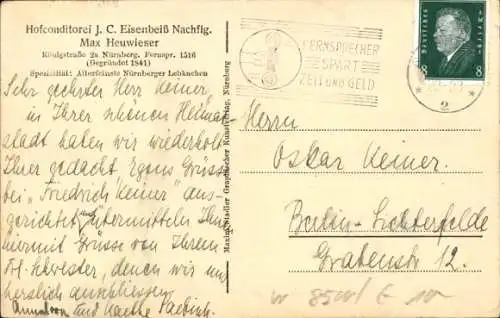 Hofconditorei J. C. Eisenbeiß Nachfig.
Max Heuwieser
Königstraße 2a Nürnberg. Fernspr. 1516
(Gegründet 1841)
Spezialität: Allerfeinste Nürnberger Lebkuchen
Sehr geehrter Herr Keiner,
in Ihrer schönen Heimat-
stadt haben wir wiederholt
Ihrer gedacht Egons Grüsse
bei "Friedrich Keiner" aus-
gerichtet und übermitteln Ihnen
hiermit Grüsse von Ihrem
Frl. Schwester, denen wir uns
herzlich anschliessen
und Kaethe
Graphischer Kunstverlag, Nürnberg
FERNSPRECHER
SPART
ZEIT UND GELD
Deutsches Reich
8 8
2
Herrn
Oskar Keiner
Berlin-Lichterfelde
Grabenstr 12.